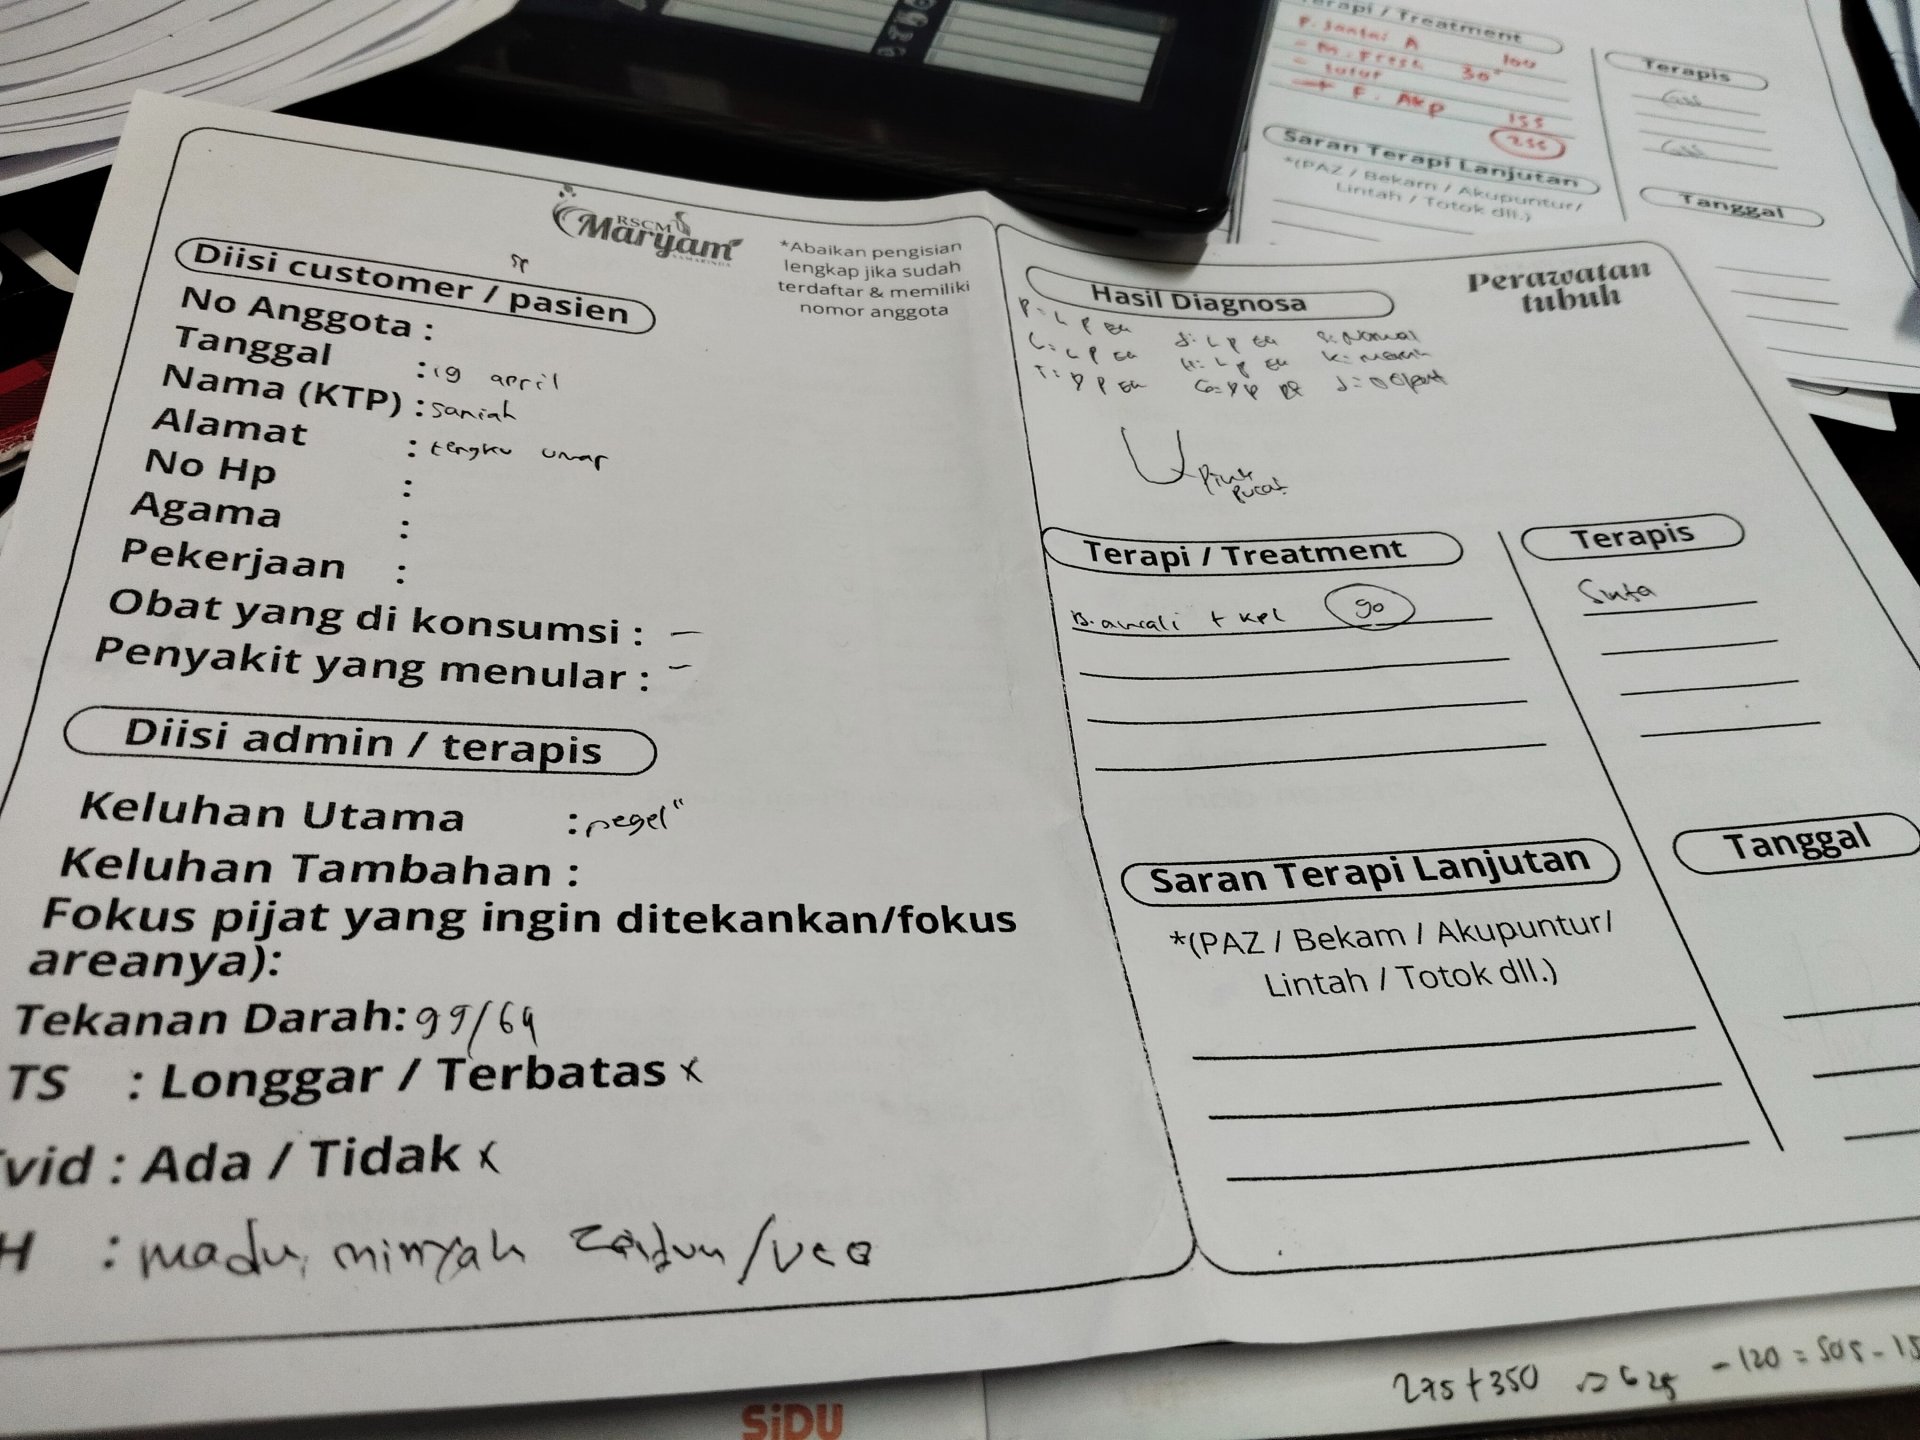 RSCM
Maryam
SAMARINDA
*Abaikan pengisian
lengkap jika sudah
terdaftar & memiliki
nomor anggota
Diisi customer / pasien
No Anggota :
Tanggal : 19 april
Nama (KTP) : saniah
Alamat : tengku umar
No Hp :
Agama :
Pekerjaan :
Obat yang di konsumsi : –
Penyakit yang menular : –
Diisi admin / terapis
Keluhan Utama : pegel"
Keluhan Tambahan :
Fokus pijat yang ingin ditekankan/fokus
areanya):
Tekanan Darah: 99/64
TS : Longgar / Terbatas x
vid : Ada / Tidak x
H : madu, minyak zaitun/vco
Perawatan
tubuh
Hasil Diagnosa
Pink
pucat
Terapi / Treatment
+ kpl 90
Terapis
Sinta
Saran Terapi Lanjutan
*(PAZ / Bekam / Akupuntur/
Lintah / Totok dll.)
Tanggal
Terapi / Treatment
P. Santai A 100
- M. Fresh 30"
- tutur
+ F. Akp 155
255
Terapis
Saran Terapi Lanjutan
*(PAZ / Bekam / Akupuntur/
Lintah / Totok dll.)
Tanggal
SiDU
275 + 350 = 625 - 120 = 505 - 15